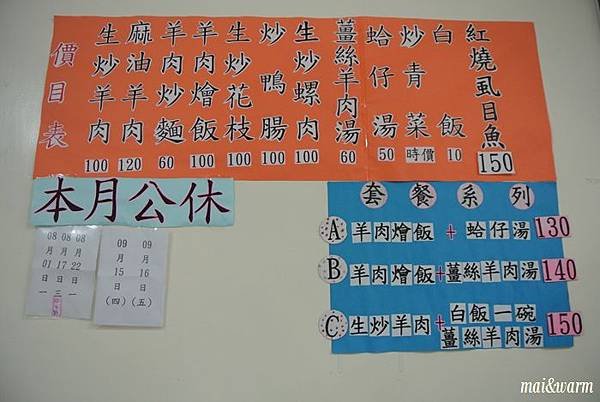 價目表
生炒羊肉 100
麻油羊肉 120
羊肉炒麵 60
羊肉燴飯 100
生炒花枝 100
炒鴨腸 100
生炒螺肉 100
薑絲羊肉湯 60
蛤仔湯 50
炒青菜 時價
白飯 10
紅燒虱目魚 150
本月公休
08月01日一
08月17日三
08月22日一
09月15日(四)
09月16日(五)
套餐系列
A 羊肉燴飯 + 蛤仔湯 130
B 羊肉燴飯+薑絲羊肉湯 140
C 生炒羊肉+白飯一碗 薑絲羊肉湯 150
mai&warm